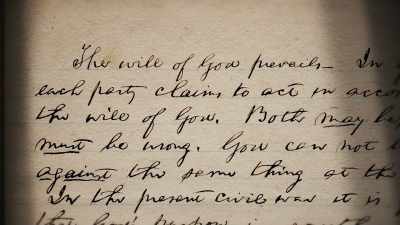 The will of God prevails— In
each party claims to act in acco
the will of God. Both may b
must be wrong. God can not
against the same thing at the
In the present civil war it is